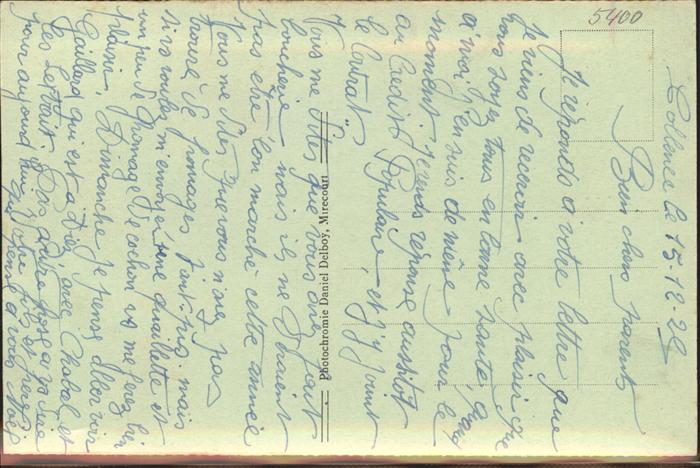 5400
Colence le 15-12-29
Bien chers parents
Je reponds a votre lettre que
Je viens de recevoir avec plaisir que
vous soyez tous en bonne santé, quant
a moi j'en suis de même pour le
moment. Je vous reponse aussitôt
au Crédit Populaire, et j'y joint
le Contrat
Vous me dites que vous avez fait
boucherie mais ils ne devaient
pas etre bon marché cette année
Vous me dites que vous n'avez pas
trouvé de fromages faut-pis, mais
si vous voulez m'envoyer une quaillette et
un peu de fromage de cochon vs me ferez bien
plaisir, Dimanche je pense aller voir
Gaillard qui est a avec Chabal et
pour aujourd'hui
Photochromie Daniel Delboy, Mirecourt